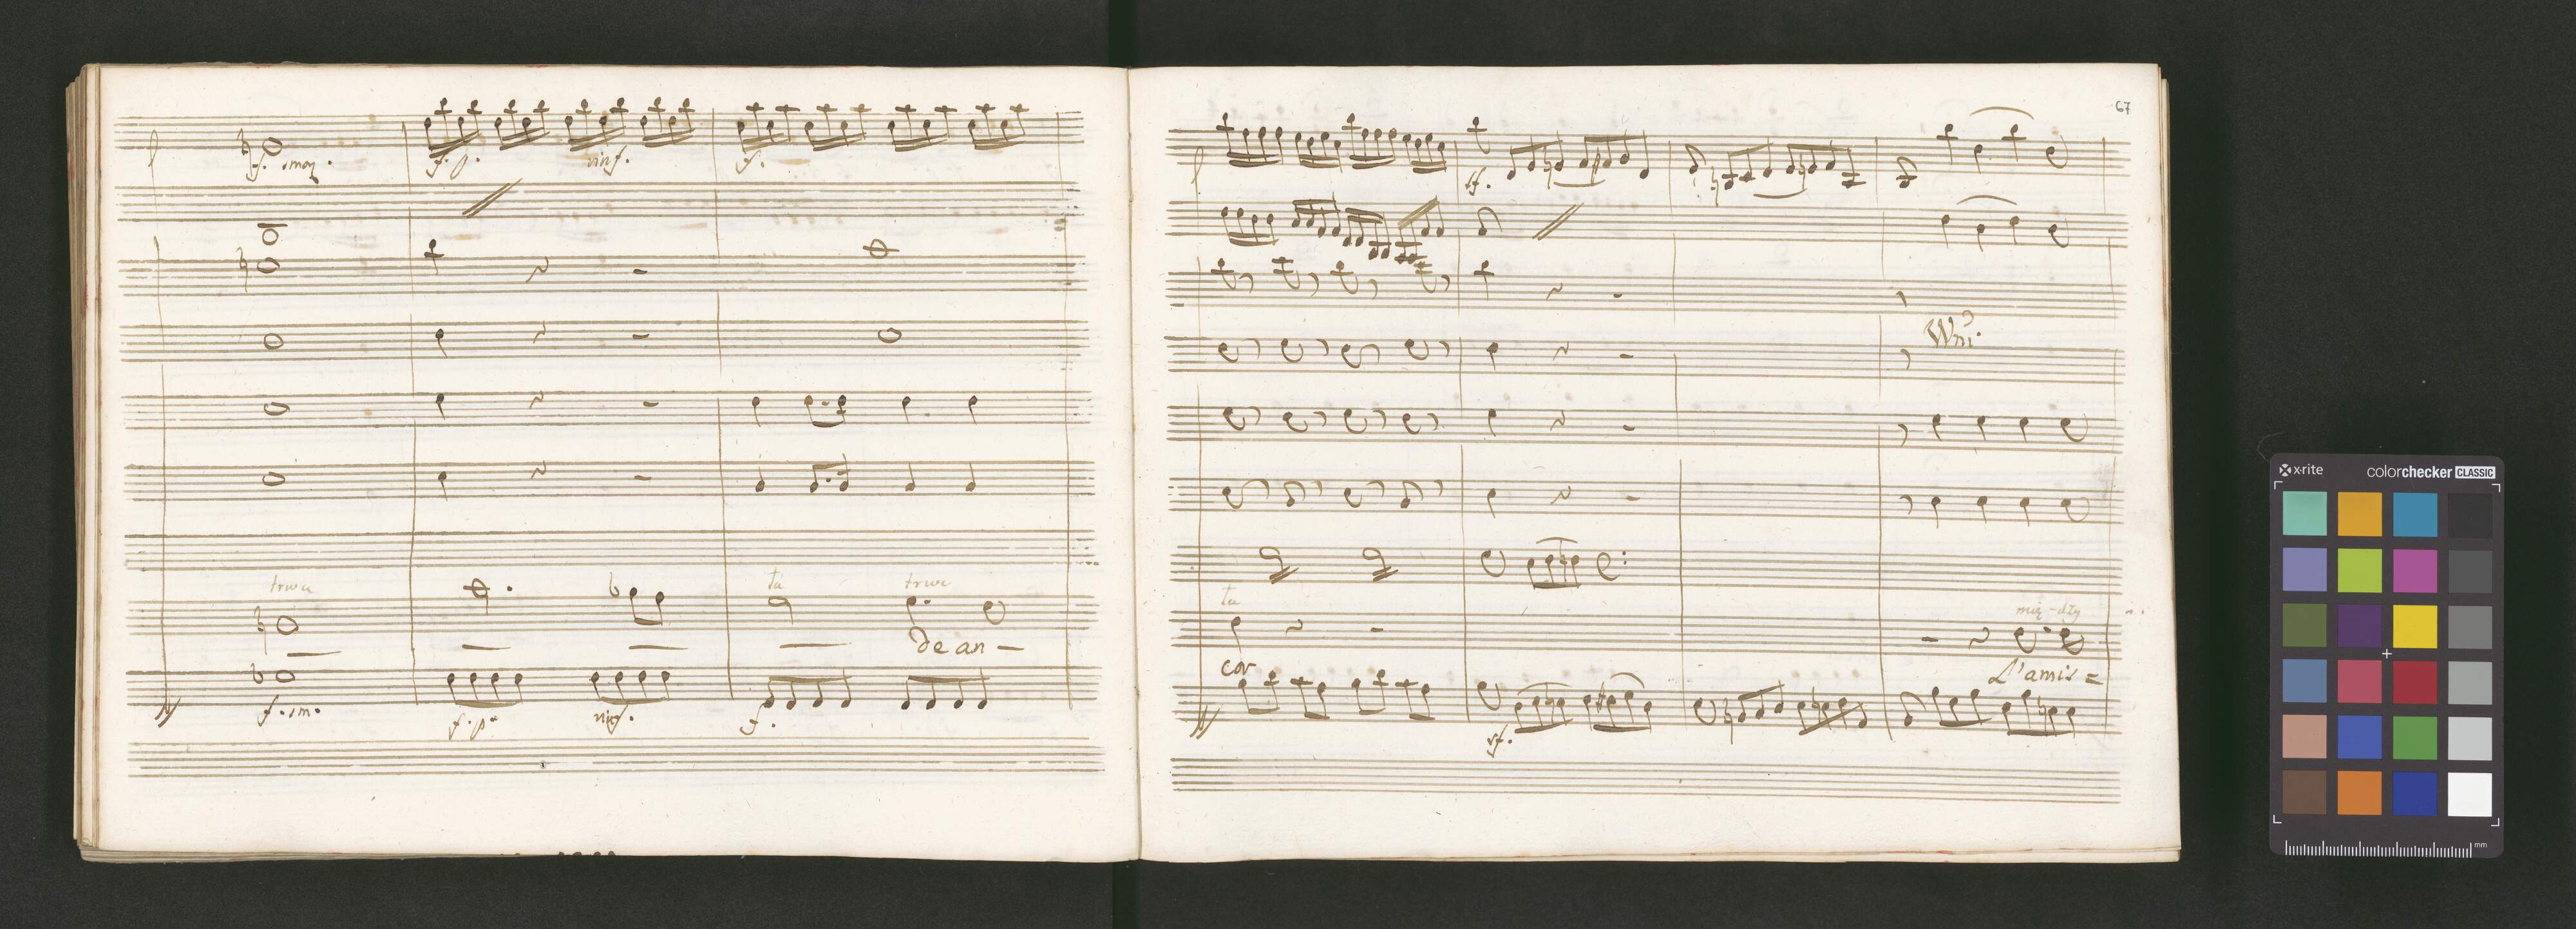 f. smorz.
f. p. rinf. f.
trwa tu trwa
de an —
f. sm. f. p. rinf. f.
67
sf.
Wni.
tu mię-dzy
cor L'amis =
sf.
x-rite colorchecker CLASSIC
mm